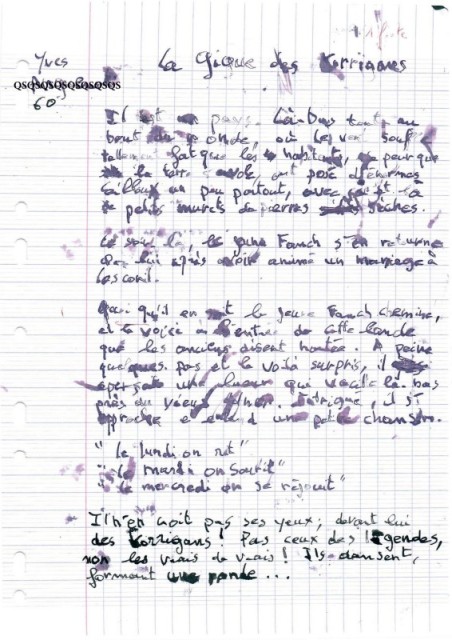 Yves
La Gigue des Korrigans
QSQSQSQSQSQSQSQS
60
Il est un pays. Là-bas tout au
bout du monde, où les vent souf
tellement fat que les habitants, peur que
la terre vole, ont posé d'énormes
cailloux un peu partout, avec
petits murets de pierres sèches.
Ce soir là, le jeune Fanch s'en retourne
chez lui après avoir animé un mariage à
Lesconil.
Quoi qu'il en soit le jeune Fanch chemine,
et le voici à l'entrée de cette lande
que les anciens disent hantée. A peine
quelques pas et le voilà surpris, il
aperçoit une lueur qui vacille là bas
près du vieux Intrigué, il s'
approche et entend une petite chanson.
" Le lundi on rit"
" le mardi on sourit"
" le mercredi on se réjouit"
Il n'en croit pas ses yeux, devant lui
des Korrigans! Pas ceux des légendes,
non les vrais de vrais! Ils dansent,
formant une ronde...